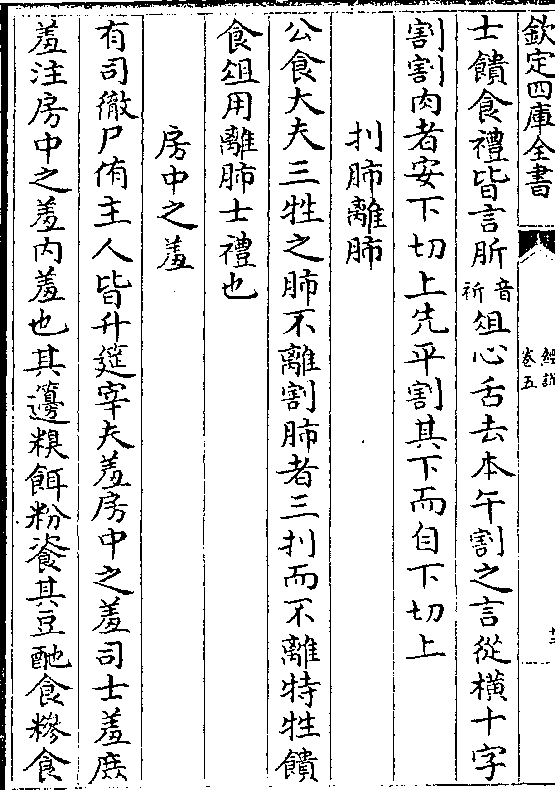 欽定四庫全書
經說
卷五
士饋食禮皆言肵音祈俎心舌去本午割之言從橫十字
割割肉者安下切上先平割其下而自下切上
刌肺離肺
公食大夫三牲之肺不離割肺者三刌而不離特牲饋
食俎用離肺士禮也
房中之羞
有司徹尸侑主人皆升筵宰夫羞房中之羞司士羞庶
羞注房中之羞內羞也其籩糗餌粉餈其豆酏食糝食